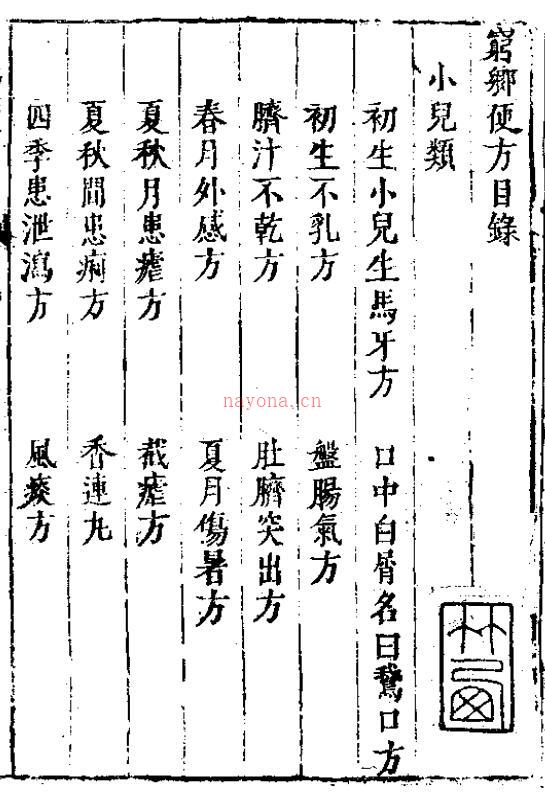 窮鄉便方目錄
小兒類
初生小兒生馬牙方　口中白屑名曰鵞口方
初生不乳方　盤腸氣方
臍汁不乾方　肚臍突出方
春月外感方　夏月傷暑方
夏秋月患瘧方　截瘧方
夏秋間患痢方　香連丸
四季患泄瀉方　風痰方
nayona.cn